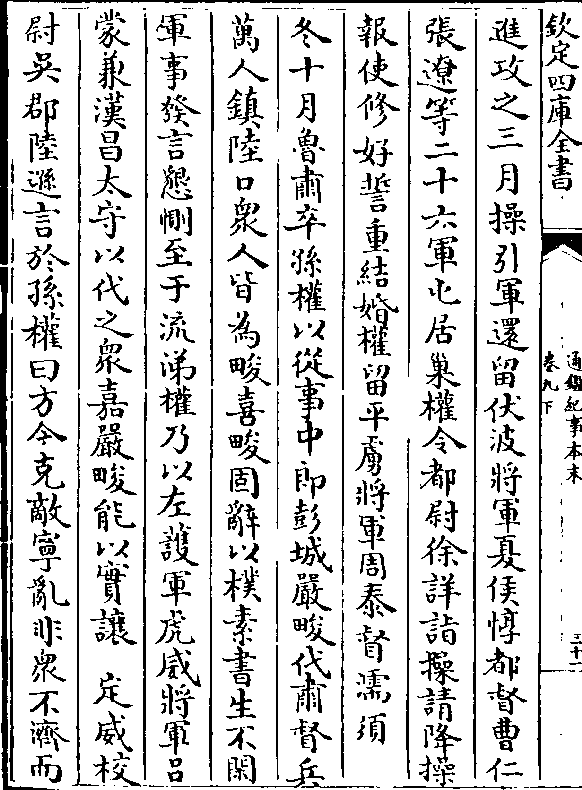 欽定四庫全書
通鑑紀事本末
卷九下
三十二
進攻之三月操引軍還留伏波將軍夏侯惇都督曹仁
張遼等二十六軍屯居巢權令都尉徐詳詣操請降操
報使修好誓重結婚權留平虜將軍周泰督濡須
冬十月魯肅卒孫權以從事中郎彭城嚴畯代肅督兵
萬人鎮陸口衆人皆為畯喜畯固辭以樸素書生不閑
軍事發言懇惻至于流涕權乃以左護軍虎威將軍呂
蒙兼漢昌太守以代之衆嘉嚴畯能以實讓 定威校
尉吳郡陸遜言於孫權曰方今克敵寧亂非衆不濟而